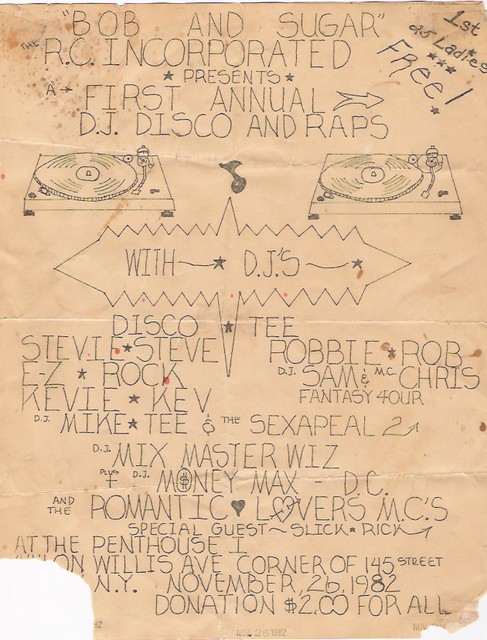 "BOB AND SUGAR"
THE R.C. INCORPORATED
1st 25 Ladies
FREE!
PRESENTS
A FIRST ANNUAL
D.J. DISCO AND RAPS
WITH D.J.'S
DISCO TEE
STEVIE STEVE ROBBIE ROB
E-Z ROCK D.J. SAM & M.C. CHRIS
KEVIE KEV FANTASY 4OUR
D.J. MIKE TEE & THE SEXAPEAL 2
D.J. MIX MASTER WIZ
PLUS D.J. MONEY MAX - D.C.
AND THE ROMANTIC LOVERS M.C.'S
SPECIAL GUEST SLICK RICK
AT THE PENTHOUSE I
ON WILLIS AVE CORNER OF 145 STREET
N.Y. NOVEMBER, 26, 1982
DONATION $2.00 FOR ALL